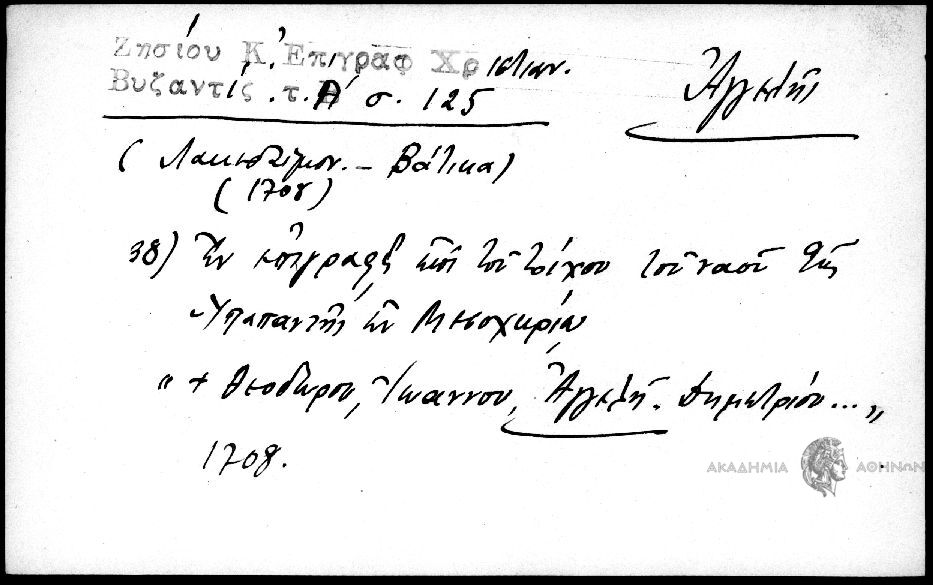 Ζησίου Κ. Ἐπιγραφ Χριστιαν.
Βυζαντίς. τ. Α' σ. 125
Ἀγγελῆς
(Λακεδαίμον. – Βάτικα)
(1708)
38) Ἐν ἐπιγραφῇ ἐπὶ τοῦ τοίχου τοῦ ναοῦ τῆς
Ὑπαπαντῆς ἐν Μεσοχωρίῳ
" + Θεοδώρου, Ἰωάννου, Ἀγγελῆ. Δημητρίου..."
1708.
ΑΚΑΔΗΜΙΑ ΑΘΗΝΩΝ